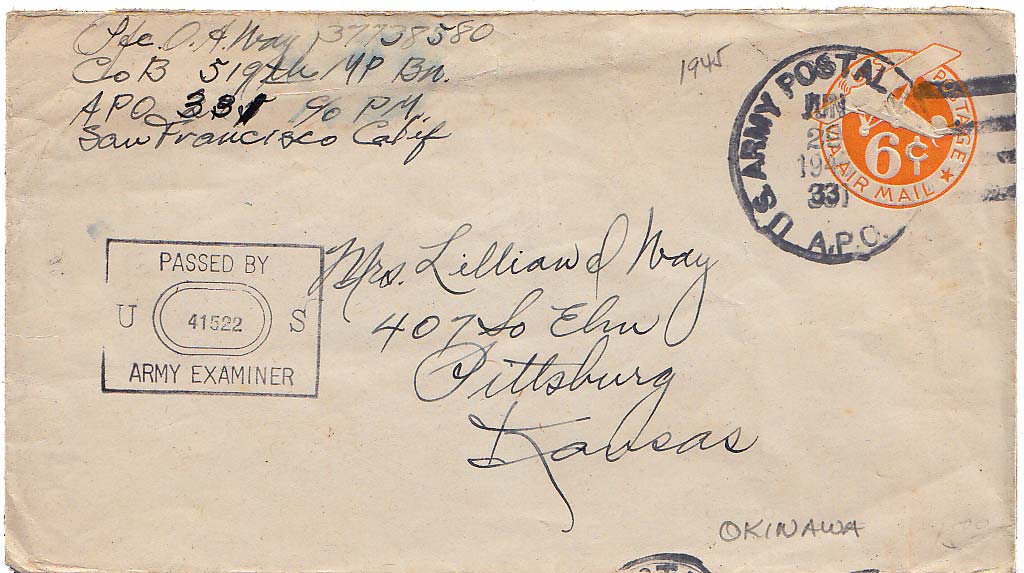 Pfc. O. H. Way 37738580
Co B 519th MP Bn.
APO 331 % P.M.
San Francisco Calif
1945
U.S. ARMY POSTAL
JUN
194
331
A.P.O.
POSTAGE
6¢
AIR MAIL
PASSED BY
U 41522 S
ARMY EXAMINER
Mrs. Lillian I Way
407 So Elm
Pittsburg
Kansas
OKINAWA